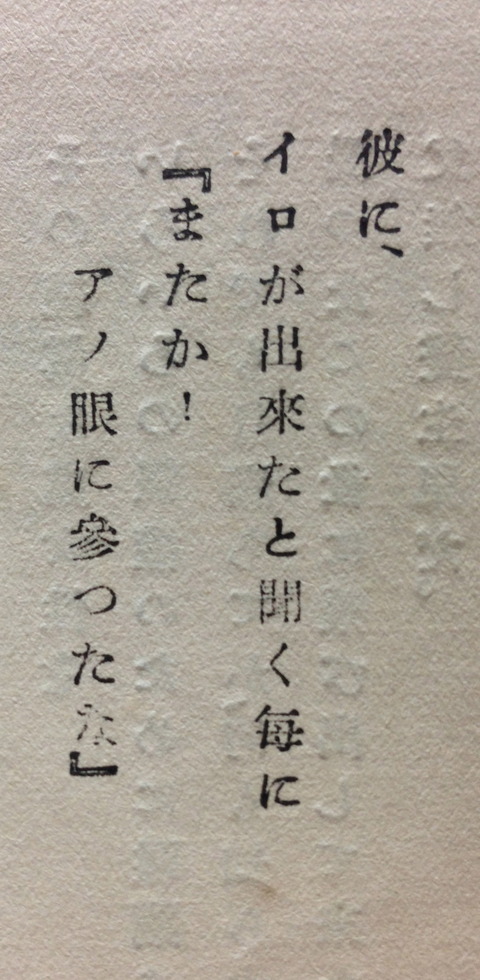 彼に、
イロが出來たと聞く每に
『またか!
アノ眼に參つたな』